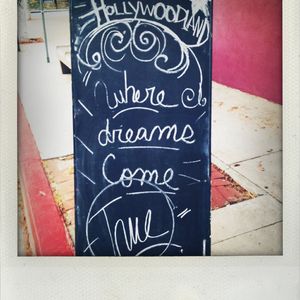 HOLLYWOODLAND
Where
dreams
Come
True